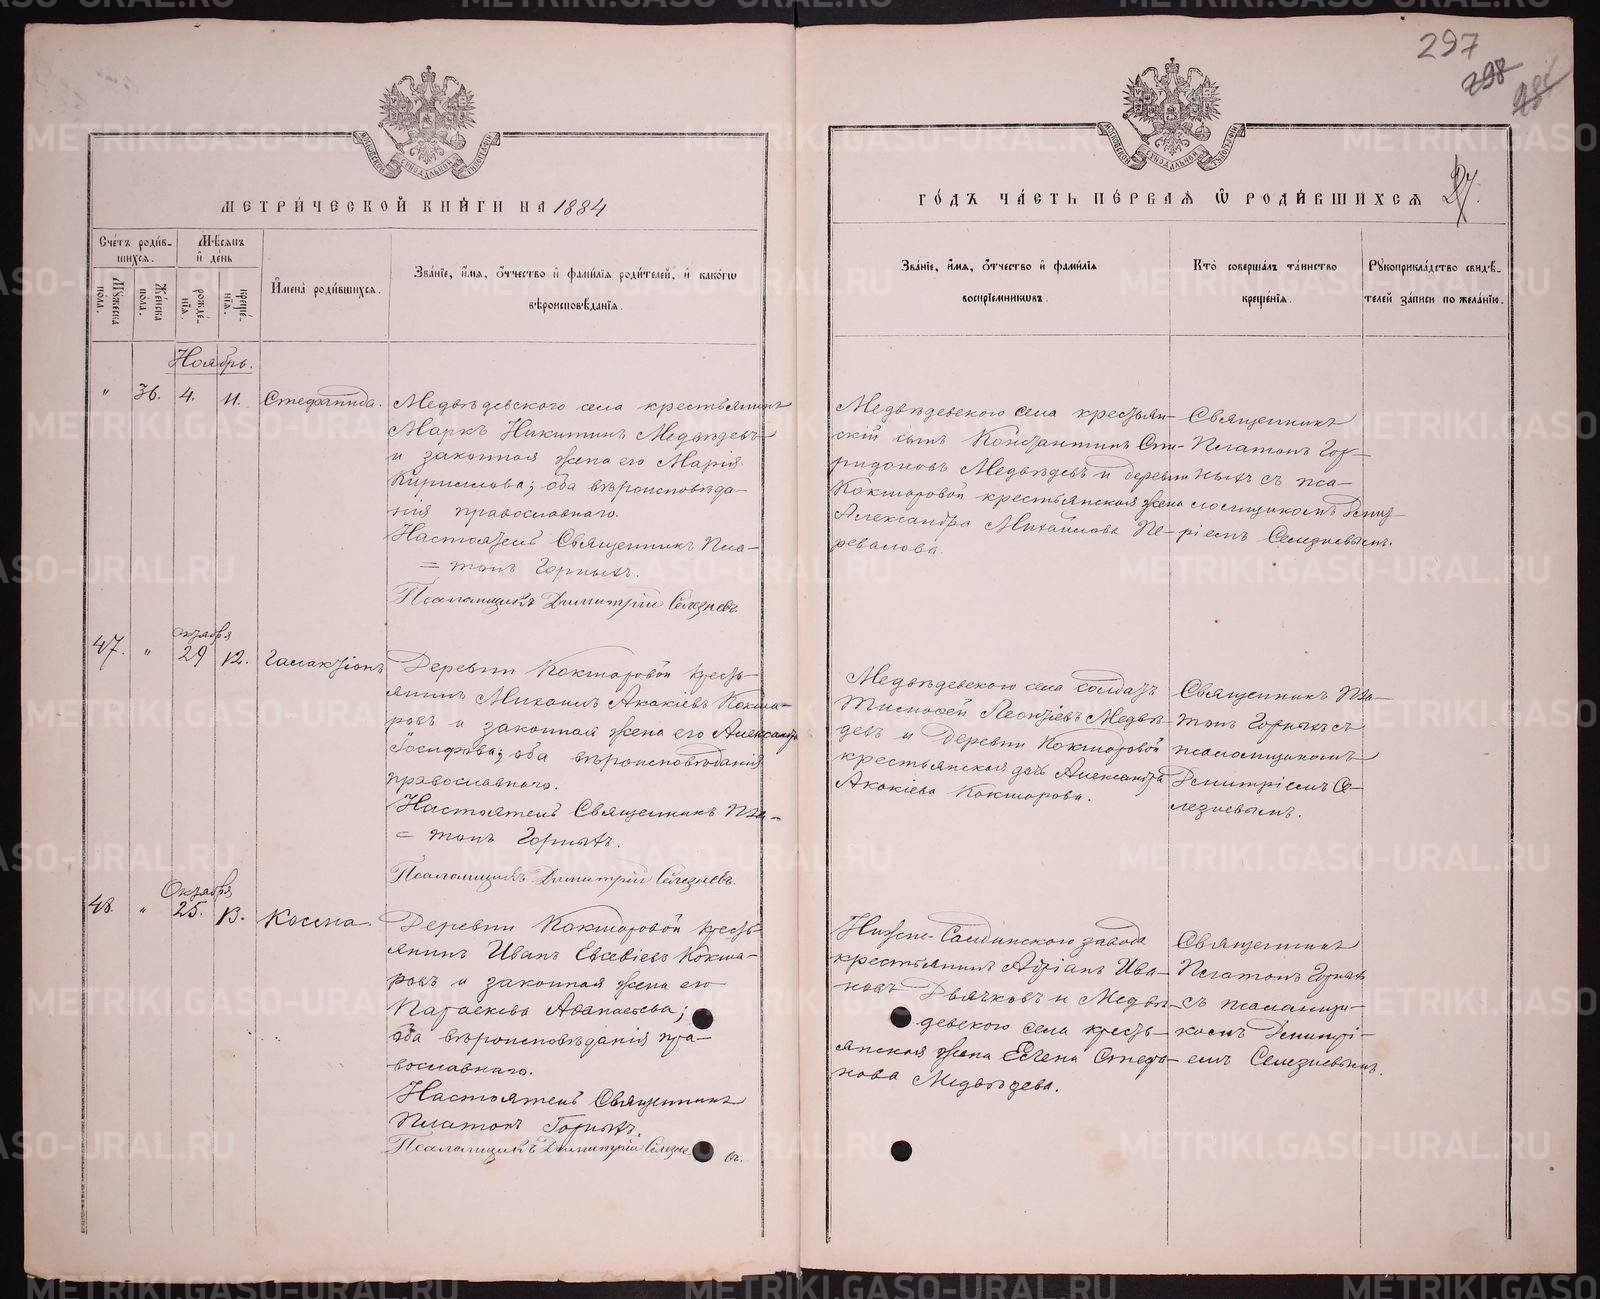 297
298
МЕТРИ́ЧЕСКОЙ КНИ́ГИ НА 1884
ГО́ДЪ ЧА́СТЬ ПЕ́РВАЯ Ѡ РОДИ́ВШИХСЯ 27.
Сче́тъ роди́в-
шихся.
Мѣ́сяцъ
и́ де́нь
Му́жеска пола.
Же́нска пола.
рожде́-
нїя.
креще́-
нїя.
И҆мена̀ роди́вшихся.
Зва́нїе, и҆́мя, о҆́тчество и҆ фами́лїя роди́телей, и҆ како́гѡ
вѣроисповѣ́данїя.
Зва́нїе, и҆́мя, о҆́тчество и҆ фами́лїя
воспрїе́мникѡвъ.
Кто̀ соверша́лъ та́инство
креще́нїя.
Рꙋкоприкла́дство свидѣ́-
телей за́писи по жела́нїю.
Ноябрь.
" 36. 4. 11. Стефанида.
Медвѣдевского села крестьянинъ
Маркъ Никитинъ Медвѣдевъ
и законная жена его Марія
Кириллова; оба вѣроисповѣда-
нія православнаго.
Настоятель Священникъ Пла-
= тонъ Горныхъ.
Псаломщикъ Димитрій Селезневъ.
Медвѣдевского села крестьян-
скій сынъ Константинъ Спи-
ридоновъ Медвѣдевъ и деревни
Кокшаровой крестьянская жена
Александра Михайлова Пе-
ревалова.
Священникъ
Платонъ Гор-
ныхъ съ пса-
ломщикомъ Дмит-
ріемъ Селезневымъ.
47. " октября 29 12. Галактіонъ
Деревни Кокшаровой кресть-
янинъ Михаилъ Акакіевъ Кокша-
ровъ и законная жена его Александра
Іосифова; оба вѣроисповѣданія
православнаго.
Настоятель Священникъ Пла-
= тонъ Горныхъ.
Псаломщикъ Димитрій Селезневъ.
Медвѣдевского села солдатъ
Тимофей Леонтіевъ Медвѣ-
девъ и деревни Кокшаровой
крестьянская дочь Александра
Акакіева Кокшарова.
Священникъ Пла-
тонъ Горныхъ съ
псаломщикомъ
Дмитріемъ Се-
лезневымъ.
48. " Октября 25. 13. Косма.
Деревни Кокшаровой кресть-
янинъ Иванъ Евсевіевъ Кокша-
ровъ и законная жена его
Параскева Аванасьева;
оба вѣроисповѣданія пра-
вославнаго.
Настоятель Священникъ
Платонъ Горныхъ.
Псаломщикъ Димитрій Селезне въ.
Нижне-Салдинского завода
крестьянинъ Адріанъ Ива-
новъ Дьячковъ и Медвѣ-
девского села кресть-
янская жена Елена Стефа-
нова Медвѣдева.
Священникъ
Платонъ Горныхъ
съ псаломщи-
комъ Дмитрі-
емъ Селезневымъ.
METRIKI.GASO-URAL.RU